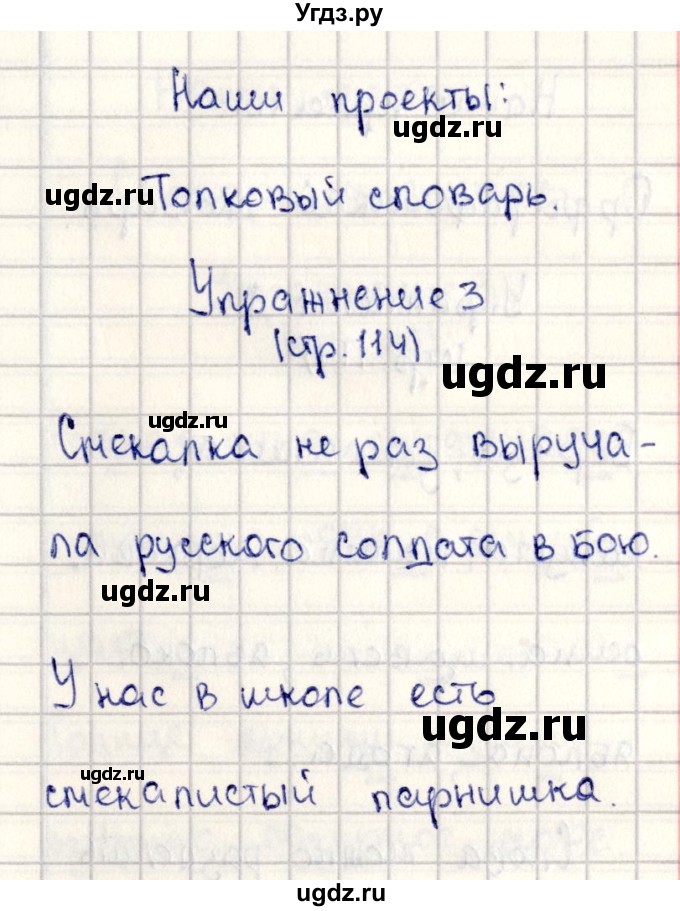 Угдз.ру
Наши проекты:
ugdz.ru
ugdz.ru Толковый словарь.
Упражнение 3
(стр. 114)
ugdz.ru
ugdz.ru
Смекалка не раз выруча-
ла русского солдата в бою.
ugdz.ru
У нас в школе есть
ugdz.ru
ugdz.ru
смекалистый парнишка.
ugdz.ru